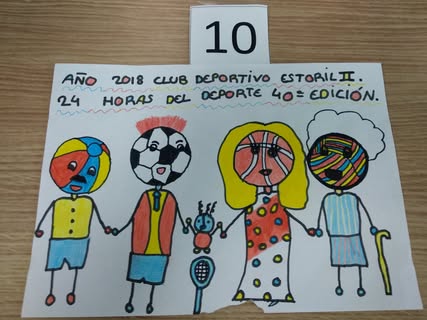 10
AÑO 2018 CLUB DEPORTIVO ESTORIL II.
24 HORAS DEL DEPORTE 40ª EDICIÓN.